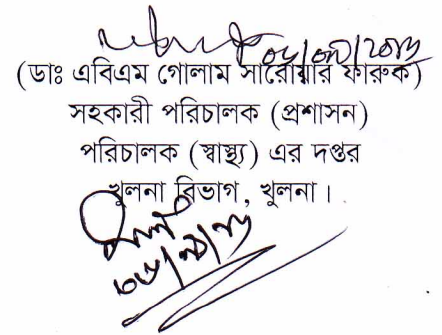 (ডাঃ এবিএম গোলাম সারোয়ার ফারুক)
সহকারী পরিচালক (প্রশাসন)
পরিচালক (স্বাস্থ্য) এর দপ্তর
খুলনা বিভাগ, খুলনা।